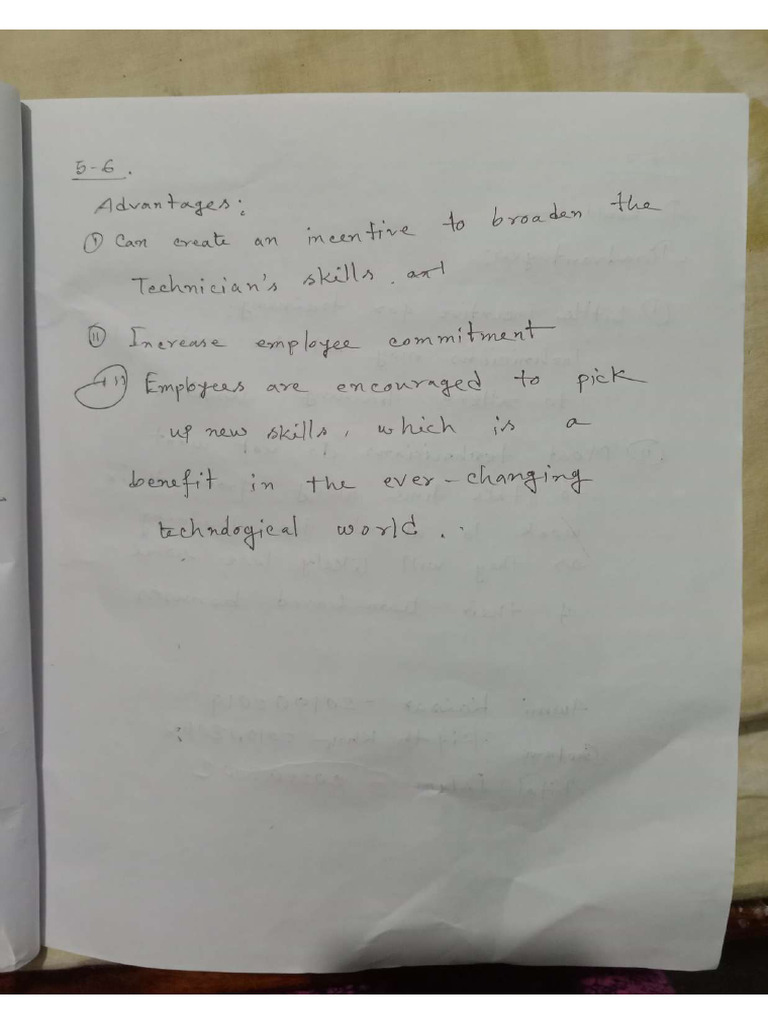 5-6.
Advantages:
(i) Can create an incentive to broaden the
Technician's skills. and
(ii) Increase employee commitment
(iii) Employees are encouraged to pick
up new skills, which is a
benefit in the ever-changing
technological world.